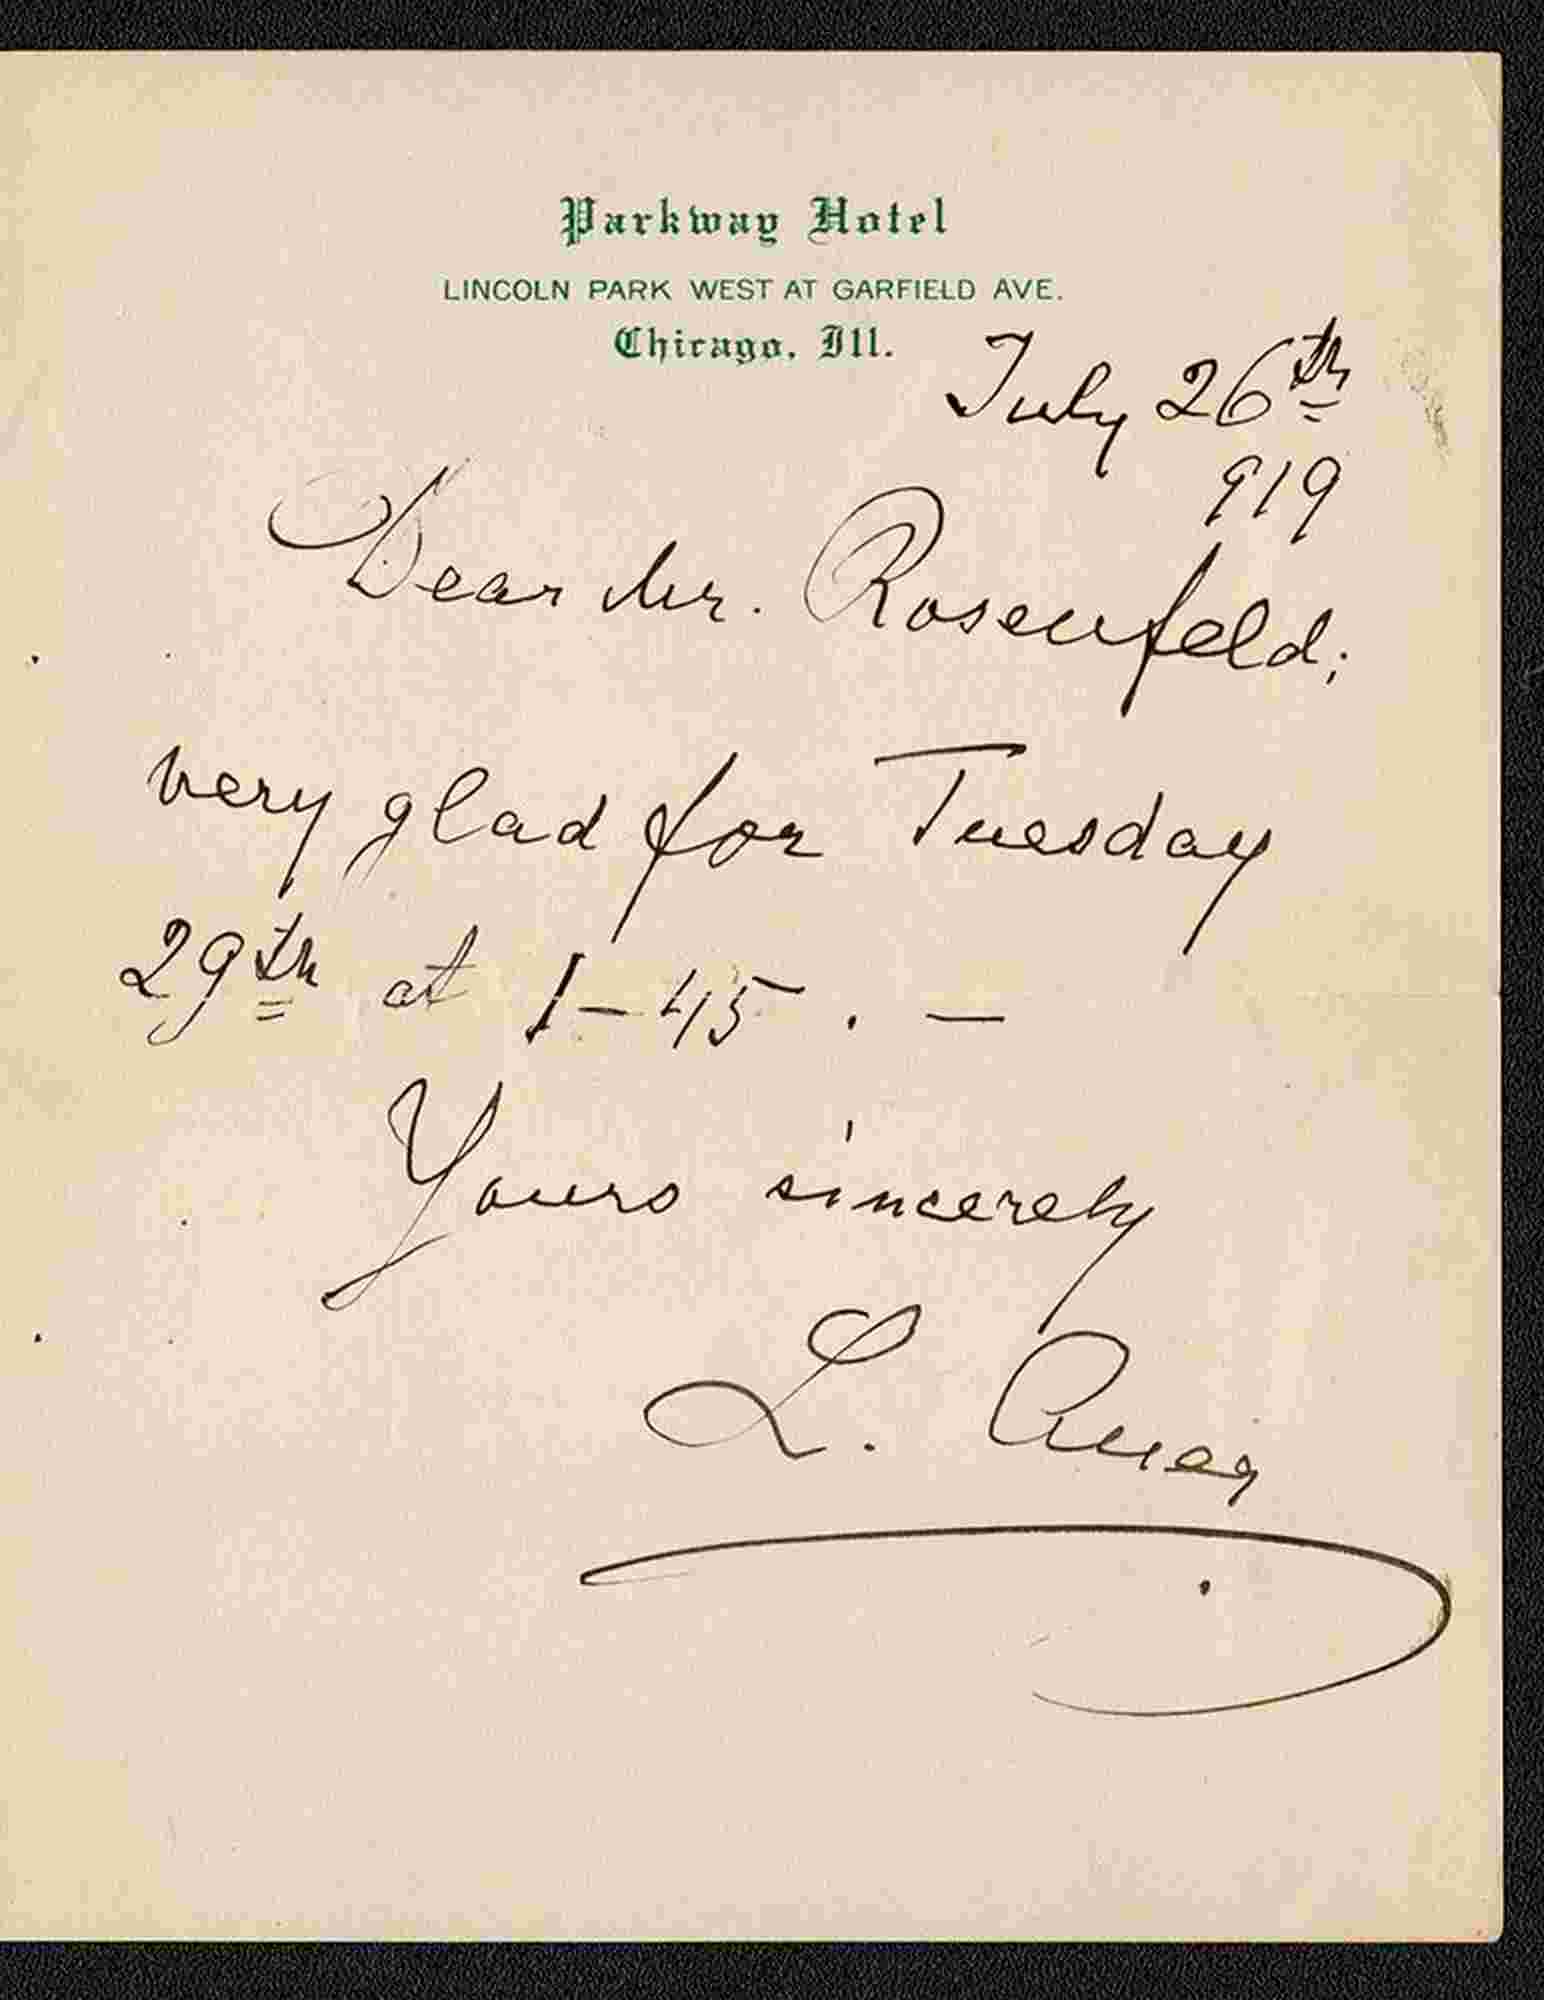 Parkway Hotel
LINCOLN PARK WEST AT GARFIELD AVE.
Chicago, Ill.
July 26th
919
Dear Mr. Rosenfeld;
very glad for Tuesday
29th at 1-45. —
Yours sincerely
L. Auer